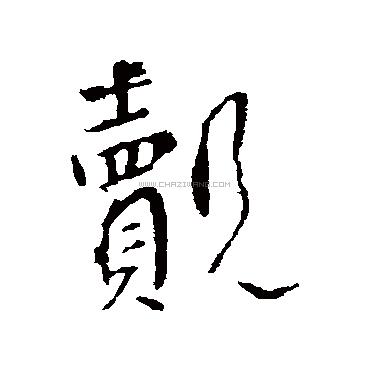 覿
WWW.CHAZIWANG.COM